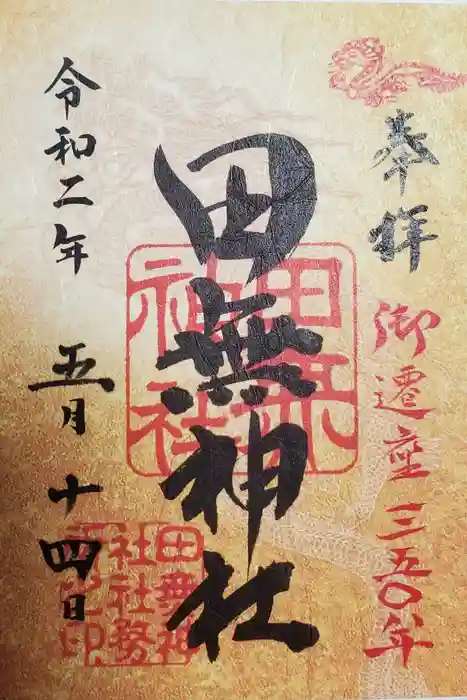 奉拝
御遷座三五〇年
田無神社
田無神社
令和二年五月十四日
田無神社社務所之印